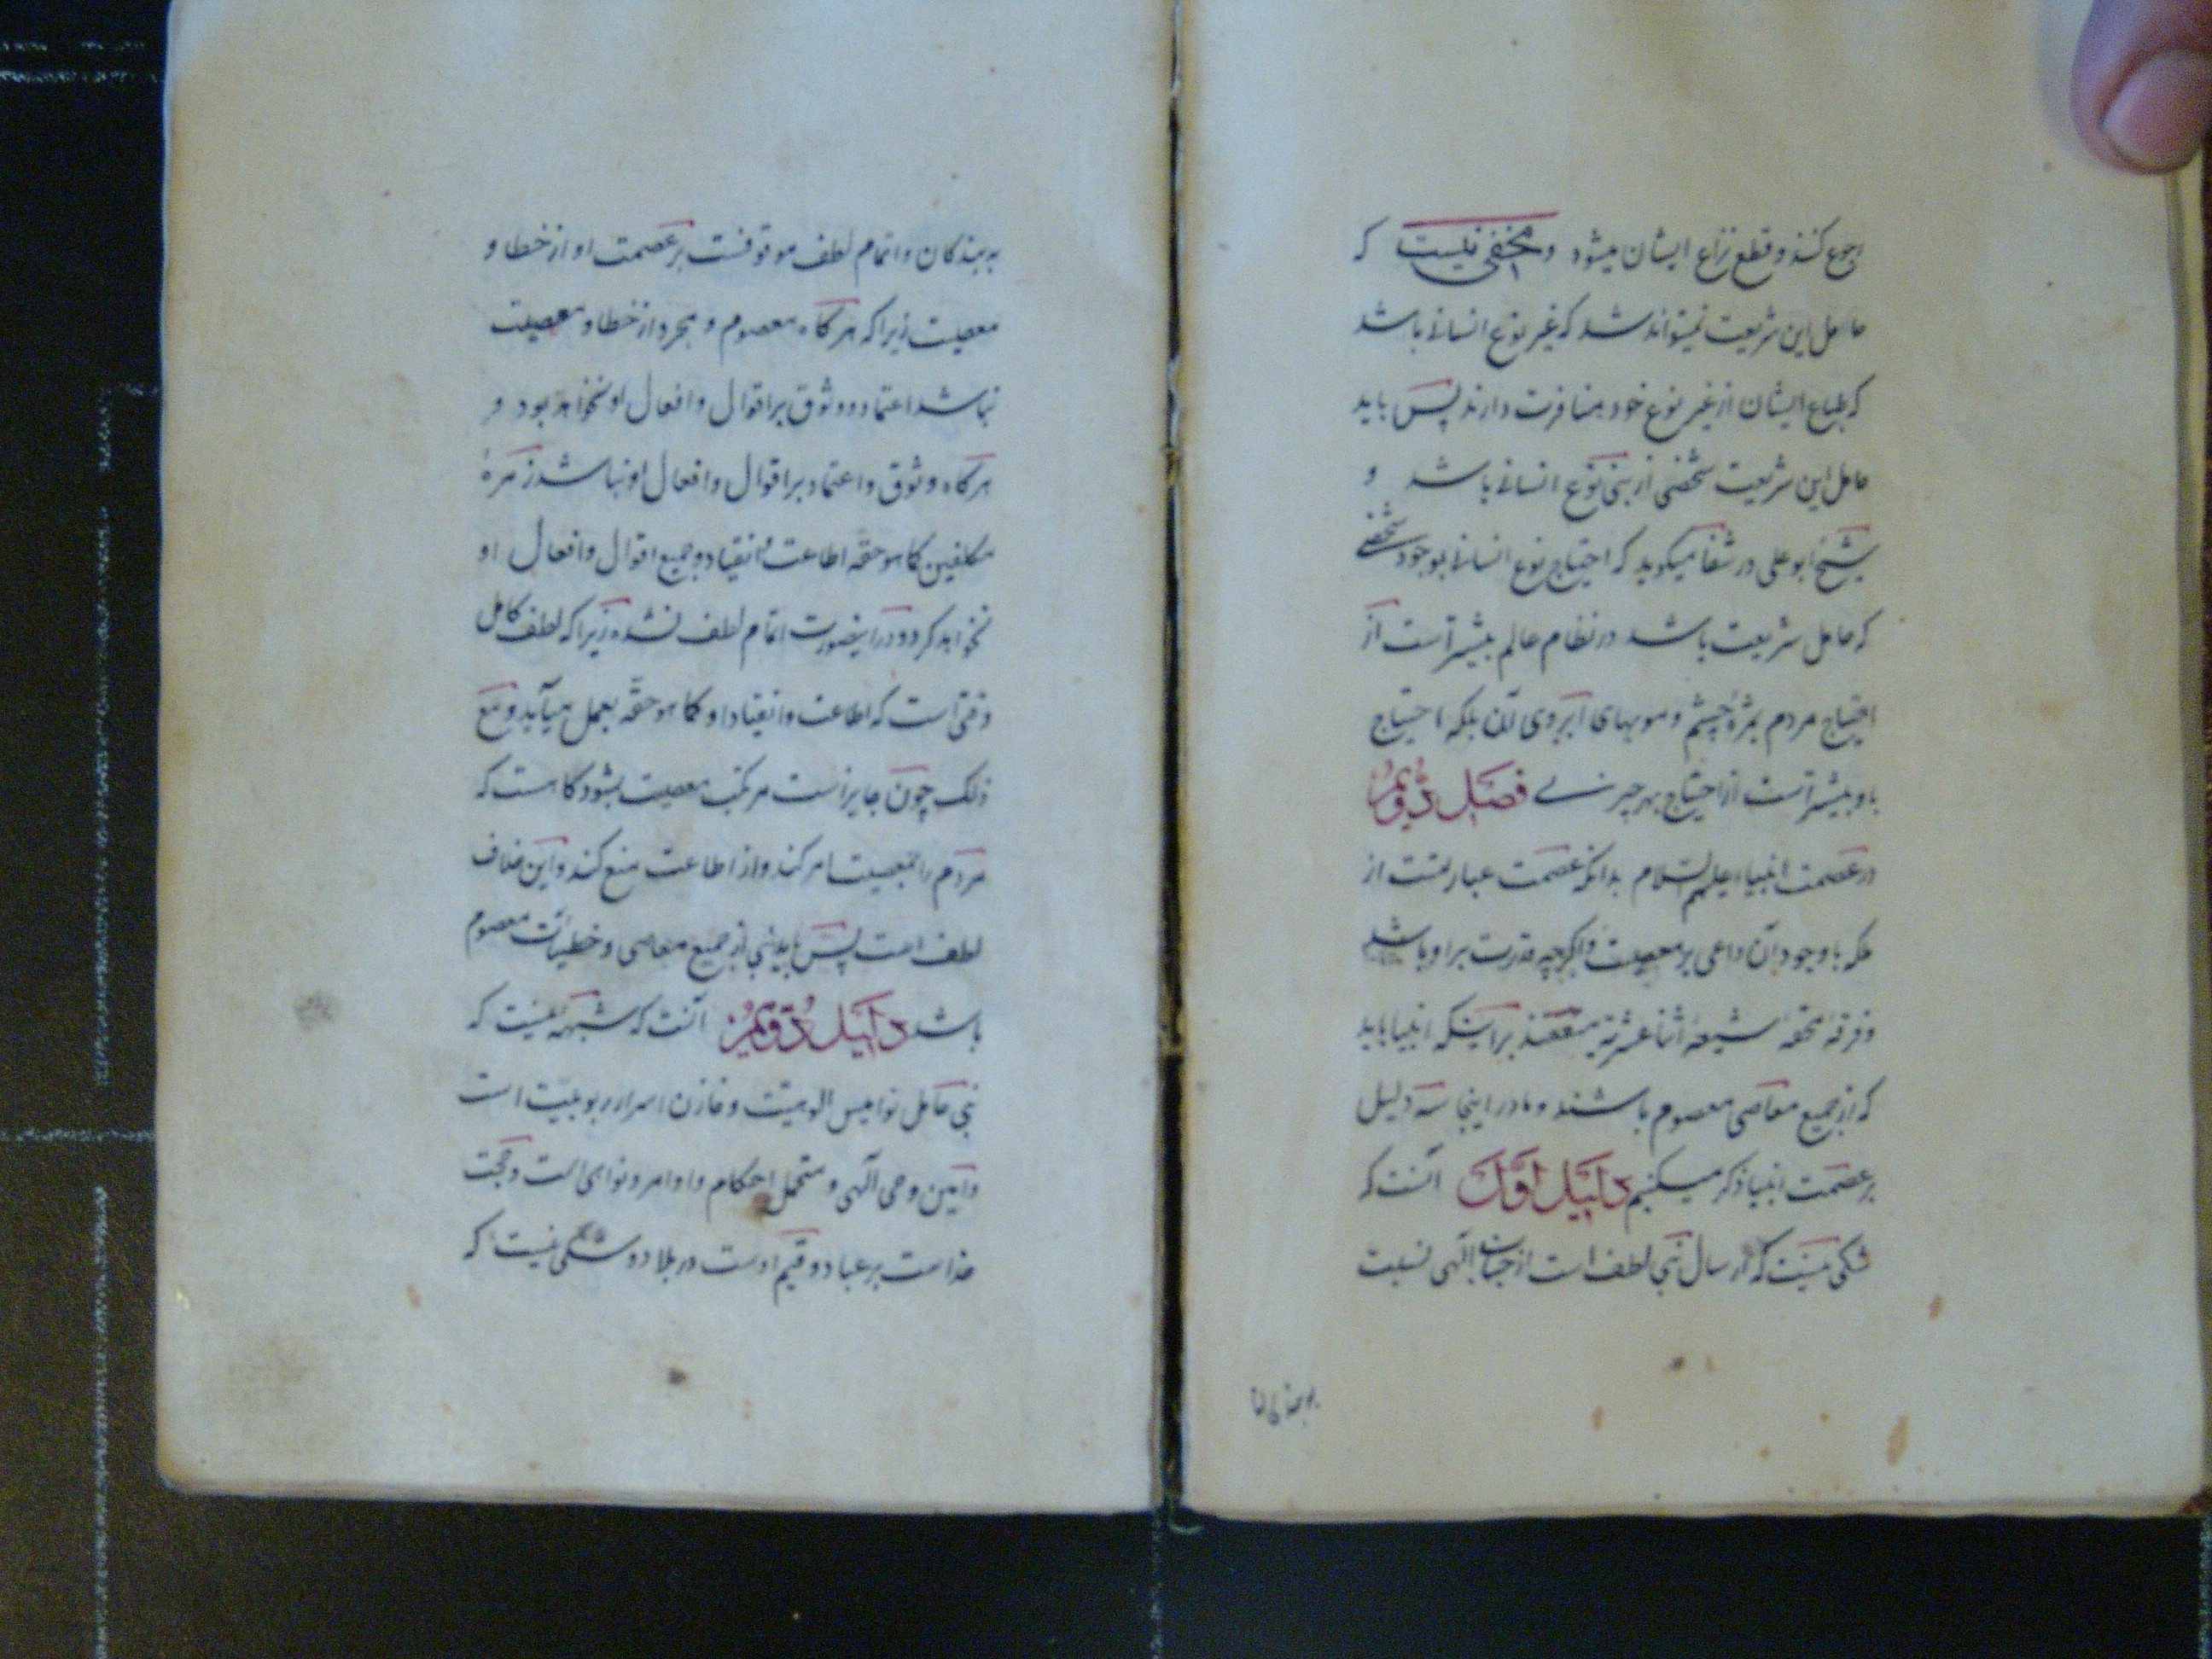 رجوع کنند و قطع نزاع ایشان میشود و مخفی نیست که
حامل این شریعت نمیتواند شد که غیر نوع انسانی باشد
که طباع ایشان از غیر نوع خود منافرت دارند پس باید
حامل این شریعت شخصی از بنی نوع انسانی باشد و
شیخ ابو علی در شفا میکوید که احتیاج نوع انسانی بوجود شخصی
که حامل شریعت باشد در نظام عالم بیشتر است از
احتیاج مردم بمژهٔ چشم و مویهای ابروی آن بلکه احتیاج
باو بیشتر است از احتیاج بهر چیزی فصل دویم
در عصمت انبیاء علیهم السلام بدانکه عصمت عبارتست از
ملکه باوجود آن داعی بر معصیت و اگرچه قدرت بر او باشد
و فرقهٔ محقهٔ شیعهٔ اثنا عشریه متفقند بر اینکه انبیا باید
که از جمیع معاصی معصوم باشند و ما در اینجا سه دلیل
بر عصمت انبیا ذکر میکنیم دلیل اول آنست که
شکی نیست که ارسال نبی لطف است از جناب الهی نسبت
به بندکان و اتمام لطف موقوفست بر عصمت او از خطا و
معصیت زیرا که هرکاه معصوم و مجرد از خطا و معصیت
نباشد اعتماد و وثوق بر اقوال و افعال او نخواهد بود و
هرکاه وثوق و اعتماد بر اقوال و افعال او نباشد زمرهٔ
مکلفین کما هو حقه اطاعت و انقیاد و جمیع اقوال و افعال او
نخواهد کرد و در اینصورت اتمام لطف نشده زیرا که لطف کامل
وقتی است که اطاعت و انقیاد او کما هو حقه بعمل میآید و مع
ذلک چون جایز است مرتکب معصیت بشود کاست که
مردم را بمعصیت امر کند و از اطاعت منع کند و این خلاف
لطف است پس باید نبی از جمیع معاصی و خطیئات معصوم
باشد دلیل دویم آنست که شبهه نیست که
نبی حامل نوامیس الوهیت و خازن اسرار ربوبیت است
و امین وحی آلهی و متحمل احکام و اوامر و نواهی است و حجت
خداست بر عباد و قیم اوست در بلاد و شکی نیست که